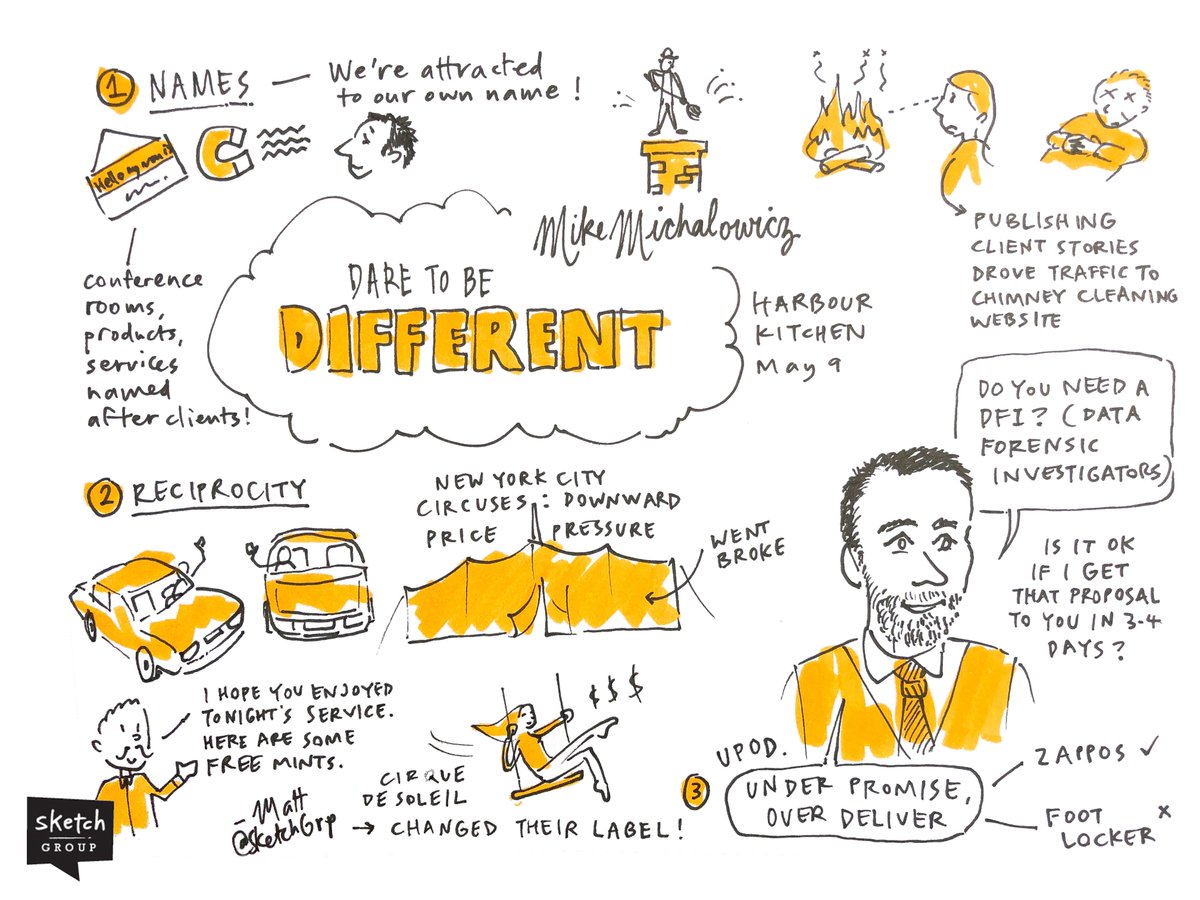 1 NAMES — We're attracted
to our own name!
Hello my name is
conference
rooms,
products,
services
named
after clients!
Mike Michalowicz
DARE TO BE
DIFFERENT
HARBOUR
KITCHEN
May 9
PUBLISHING
CLIENT STORIES
DROVE TRAFFIC TO
CHIMNEY CLEANING
WEBSITE
2 RECIPROCITY
I HOPE YOU ENJOYED
TONIGHT'S SERVICE.
HERE ARE SOME
FREE MINTS.
NEW YORK CITY
CIRCUSES: DOWNWARD
PRICE PRESSURE
WENT
BROKE
$ $ $
CIRQUE
DE SOLEIL
→ CHANGED THEIR LABEL!
- Matt
@sketchGrp
DO YOU NEED A
DFI? (DATA
FORENSIC
INVESTIGATORS)
IS IT OK
IF I GET
THAT PROPOSAL
TO YOU IN 3-4
DAYS?
UPOD.
3 UNDER PROMISE,
OVER DELIVER
ZAPPOS ✓
FOOT
LOCKER x
sketch
GROUP